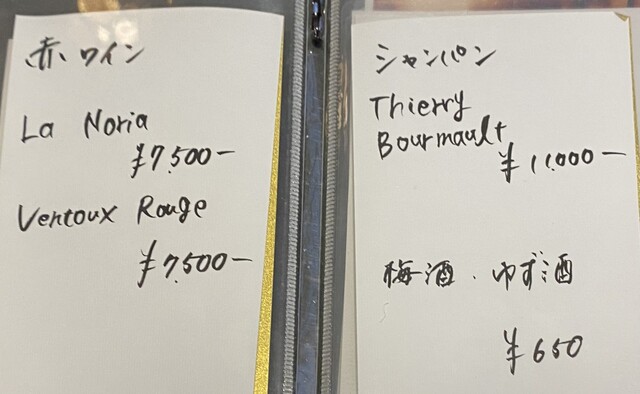 赤ワイン
La Noria
¥7,500-
Ventoux Rouge
¥7,500-
シャンパン
Thierry
Bourmault
¥11,000-
梅酒・ゆず酒
¥650